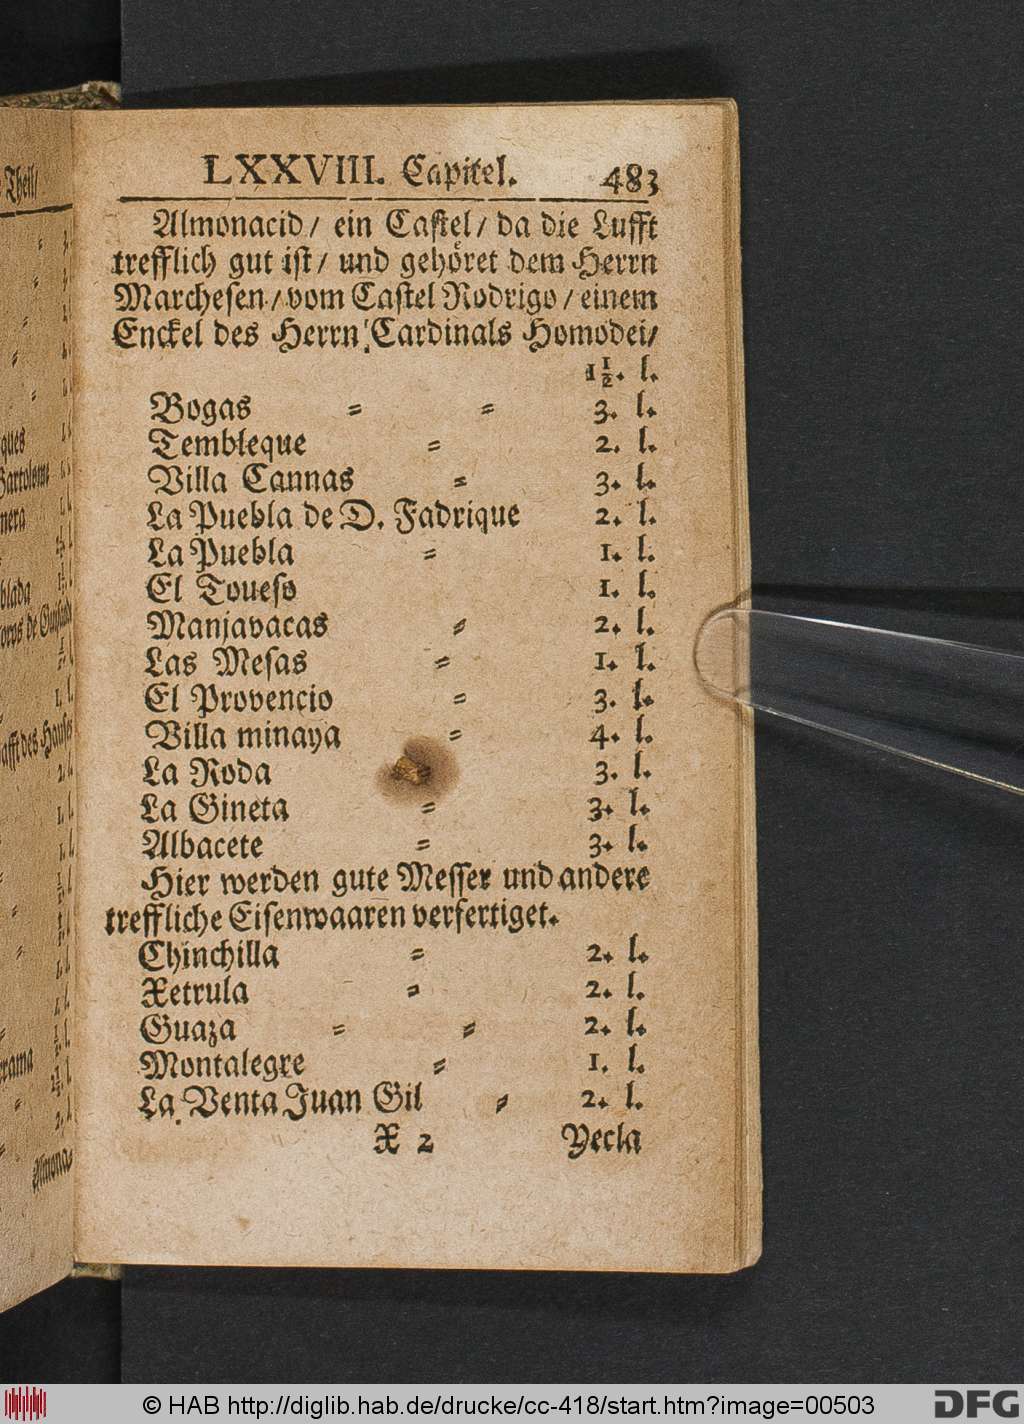 LXXVIII. Capitel. 483
Almonacid / ein Castel / da die Lufft
trefflich gut ist / und gehöret dem Herrn
Marchesen / vom Castel Rodrigo / einem
Enckel des Herrn Cardinals Homodei /
1½. l.
Bogas = = 3. l.
Tembleque = 2. l.
Villa Cannas = 3. l.
La Puebla de D. Fadrique 2. l.
La Puebla = 1. l.
El Toueso 1. l.
Manjavacas = 2. l.
Las Mesas = 1. l.
El Provencio = 3. l.
Villa minaya = 4. l.
La Roda 3. l.
La Gineta = 3. l.
Albacete = 3. l.
Hier werden gute Messer und andere
treffliche Eisenwaaren verfertiget.
Chinchilla = 2. l.
Xetrula = 2. l.
Guaza = = 2. l.
Montalegre = 1. l.
La Venta Juan Gil = 2. l.
X 2 Yecla
© HAB http://diglib.hab.de/drucke/cc-418/start.htm?image=00503
DFG